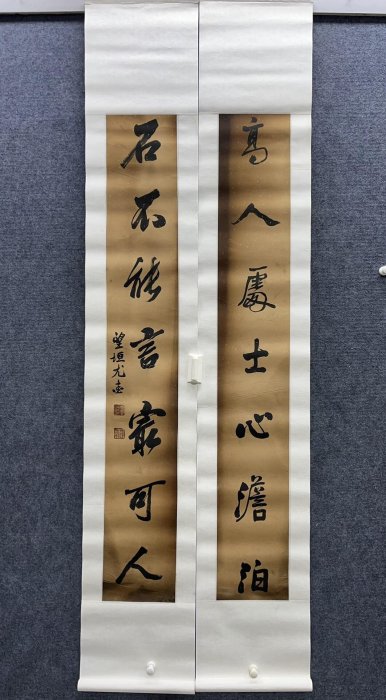 高人處士心澹泊
石不能言最可人
望垣尤壺